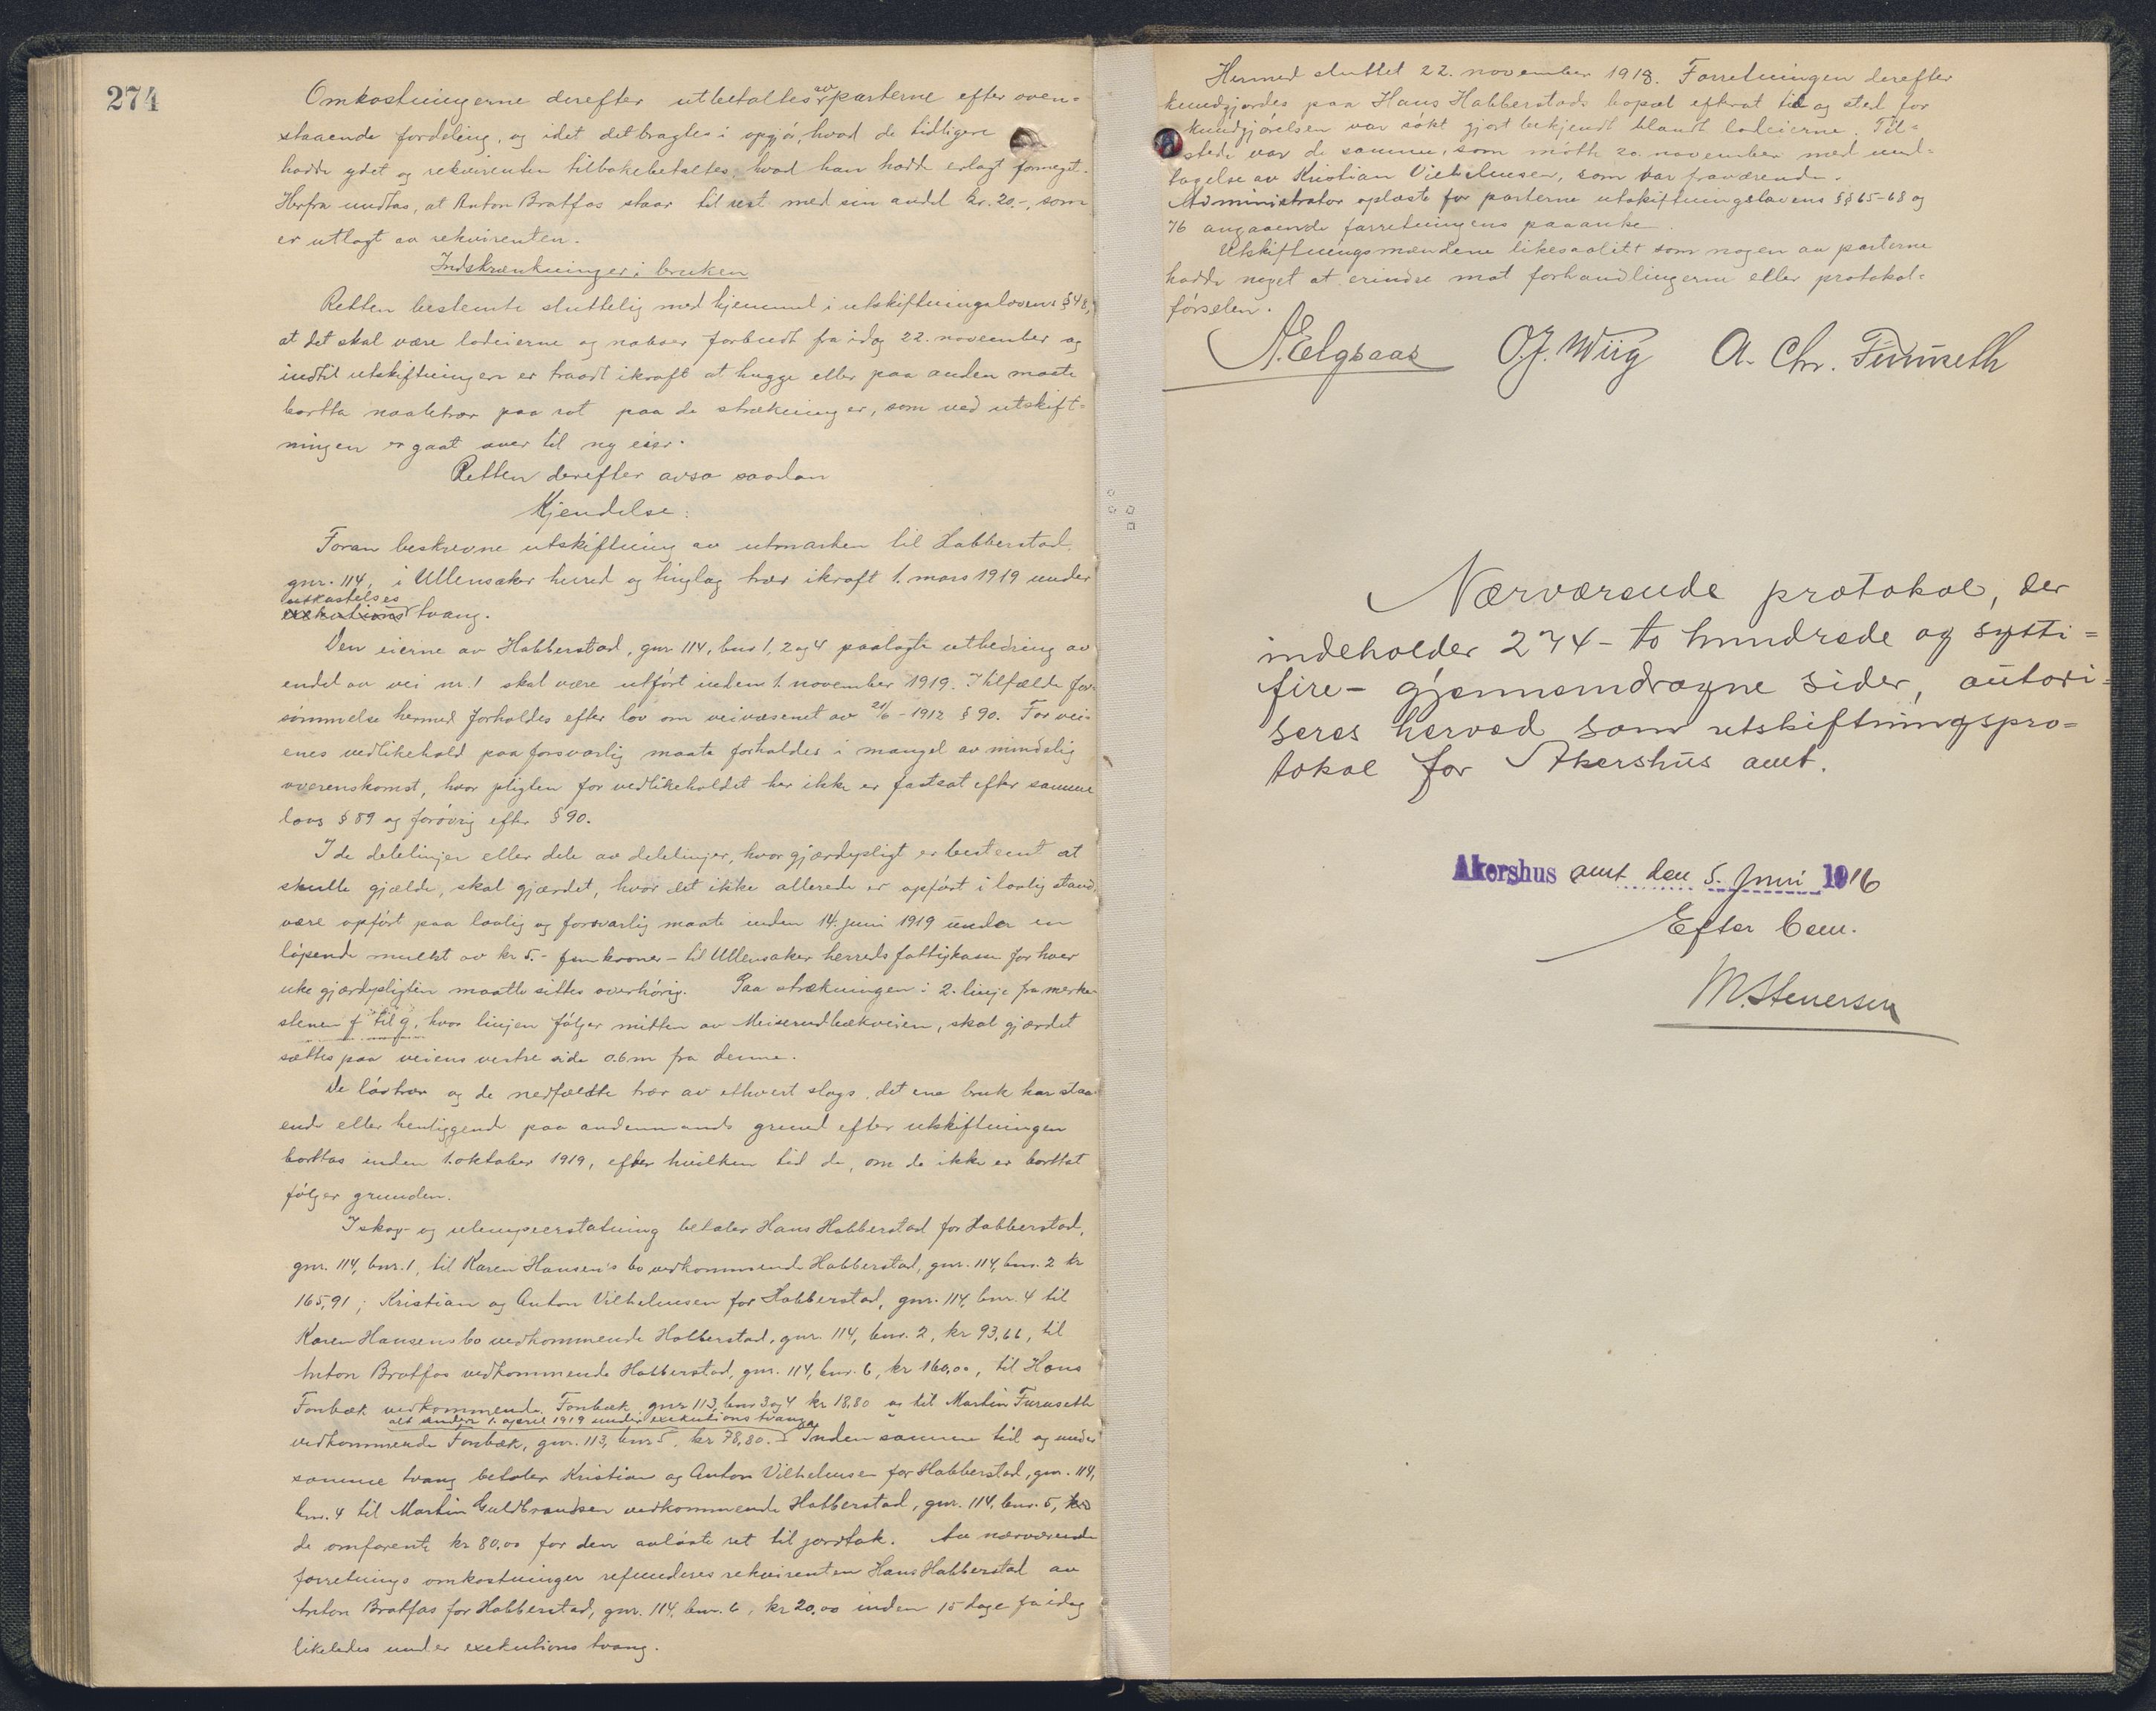 274
Omkostningerne derefter utbetaltes av parterne efter oven=
staaende fordeling, og idet det bragtes i opgjör, hvad de tidligere
hadde ydet og rekvirenten tilbakebetaltes, hvad han hadde erlagt formeget.
Herfra undtas, at Anton Bratfos staar til rest med sin andel kr. 20.-, som
er utlagt av rekvirenten.
Indskrænkninger i bruken
Retten bestemte sluttelig med hjemmel i utskiftningslovens § 48,
at det skal være lodeierne og naboer forbudt fra idag 22. november og
indtil utskiftningen er traadt ikraft at hugge eller paa anden maate
bortta naaletrær paa rot paa de strækninger, som ved utskift=
ningen er gaat over til ny eier.
Retten derefter avsa saadan
Kjendelse:
Foran beskrevne utskiftning av utmarken til Habberstad,
gnr. 114, i Ullensaker herred og tinglag trær ikraft 1. mars 1919 under
utkastelses
exekutions tvang.
Den eierne av Habberstad, gnr 114, bnr 1, 2 og 4 paalagte utbedring av
endel av vei nr. 1 skal være utfört inden 1. november 1919. I tilfælde for-
sömmelse hermed forholdes efter lov om veivæsenet av 21/6 - 1912 § 90. For vei-
enes vedlikehold paa forsvarlig maate forholdes i mangel av mindelig
overenskomst, hvor pligten for vedlikeholdet her ikke er fastsat efter samme
lovs § 89 og forövrig efter § 90.
I de delelinjer eller dele av delelinjer, hvor gjærdepligt er bestemt at
skulle gjælde, skal gjærdet, hvor det ikke allerede er opfört i lovlig stand,
være opfört paa lovlig og forsvarlig maate inden 14. juni 1919 under en
löpende mulkt av kr 5.- fem kroner - til Ullensaker herreds fattigkasse for hver
uke gjærdepligten maatte sittes overhörig. Paa strækningen i 2. linje fra merke-
stenen f til g, hvor linjen fölger midten av Meiserudbækveien, skal gjærdet
sættes paa veiens vestre side 0.6 m fra denne.
De lövtrær og de nedfældte trær av ethvert slags, det ene bruk har staa-
ende eller henliggende paa andenmands grund efter utskiftningen
borttas inden 1. oktober 1919, efter hvilken tid de, om de ikke er borttat
fölger grunden.
I skog- og ulempeerstatning betaler Hans Habberstad for Habberstad,
gnr. 114, bnr. 1, til Karen Hansen's bo vedkommende Habberstad, gnr. 114, bnr. 2 kr
165,91; Kristian og Anton Vilhelmsen for Habberstad, gnr. 114, bnr. 4 til
Karen Hansens bo vedkommende Habberstad, gnr. 114, bnr. 2, kr 93,66, til
Anton Bratfos vedkommende Habberstad, gnr. 114, bnr. 6, kr 160,00, til Hans
Fonbæk vedkommende Fonbæk, gnr 113, bnr 3 og 4 kr 18,80 og til Martin Furuseth
alt inden 1. april 1919 under exekutions tvang
vedkommende Fonbæk, gnr. 113, bnr 5, kr 78,80. Inden samme tid og under
samme tvang betaler Kristian og Anton Vilhelmsen for Habberstad, gnr. 114,
bnr. 4 til Martin Guldbrandsen vedkommende Habberstad, gnr. 114, bnr. 5,
de omforente kr 80,00 for den avlöste ret til jordtak. Av nærværende
forretnings omkostninger refunderes rekvirenten Hans Habberstad av
Anton Bratfos for Habberstad, gnr. 114, bnr. 6, kr 20,00 inden 15 dage fra idag
likeledes under exekutions tvang.
Hermed sluttet 22. november 1918. Forretningen derefter
kundgjordes paa Hans Habberstads bopæl efterat tid og sted for
kundgjörelsen var sökt gjort bekjendt blandt lodeierne. Til=
stede var de samme, som mötte 20. november med und=
tagelse av Kristian Vilhelmsen, som var fraværende.
Administrator oplæste for parterne utskiftningslovens §§ 65-68 og
76 angaaende forretningens paaanke.
Utskiftningsmændene likesaalitt som nogen av parterne
hadde noget at erindre mot forhandlingerne eller protokol=
förselen.
A. Elgsaas O.J. Wiig A. Chr. Furuseth
Nærværende protokol, der
indeholder 274 - to hundrede og sytti=
fire - gjennemdragne sider, autori=
seres herved som utskiftningspro=
tokol for Akershus amt.
Akershus amt den 5. Juni 1916
Efter bem.
M. Stenersen